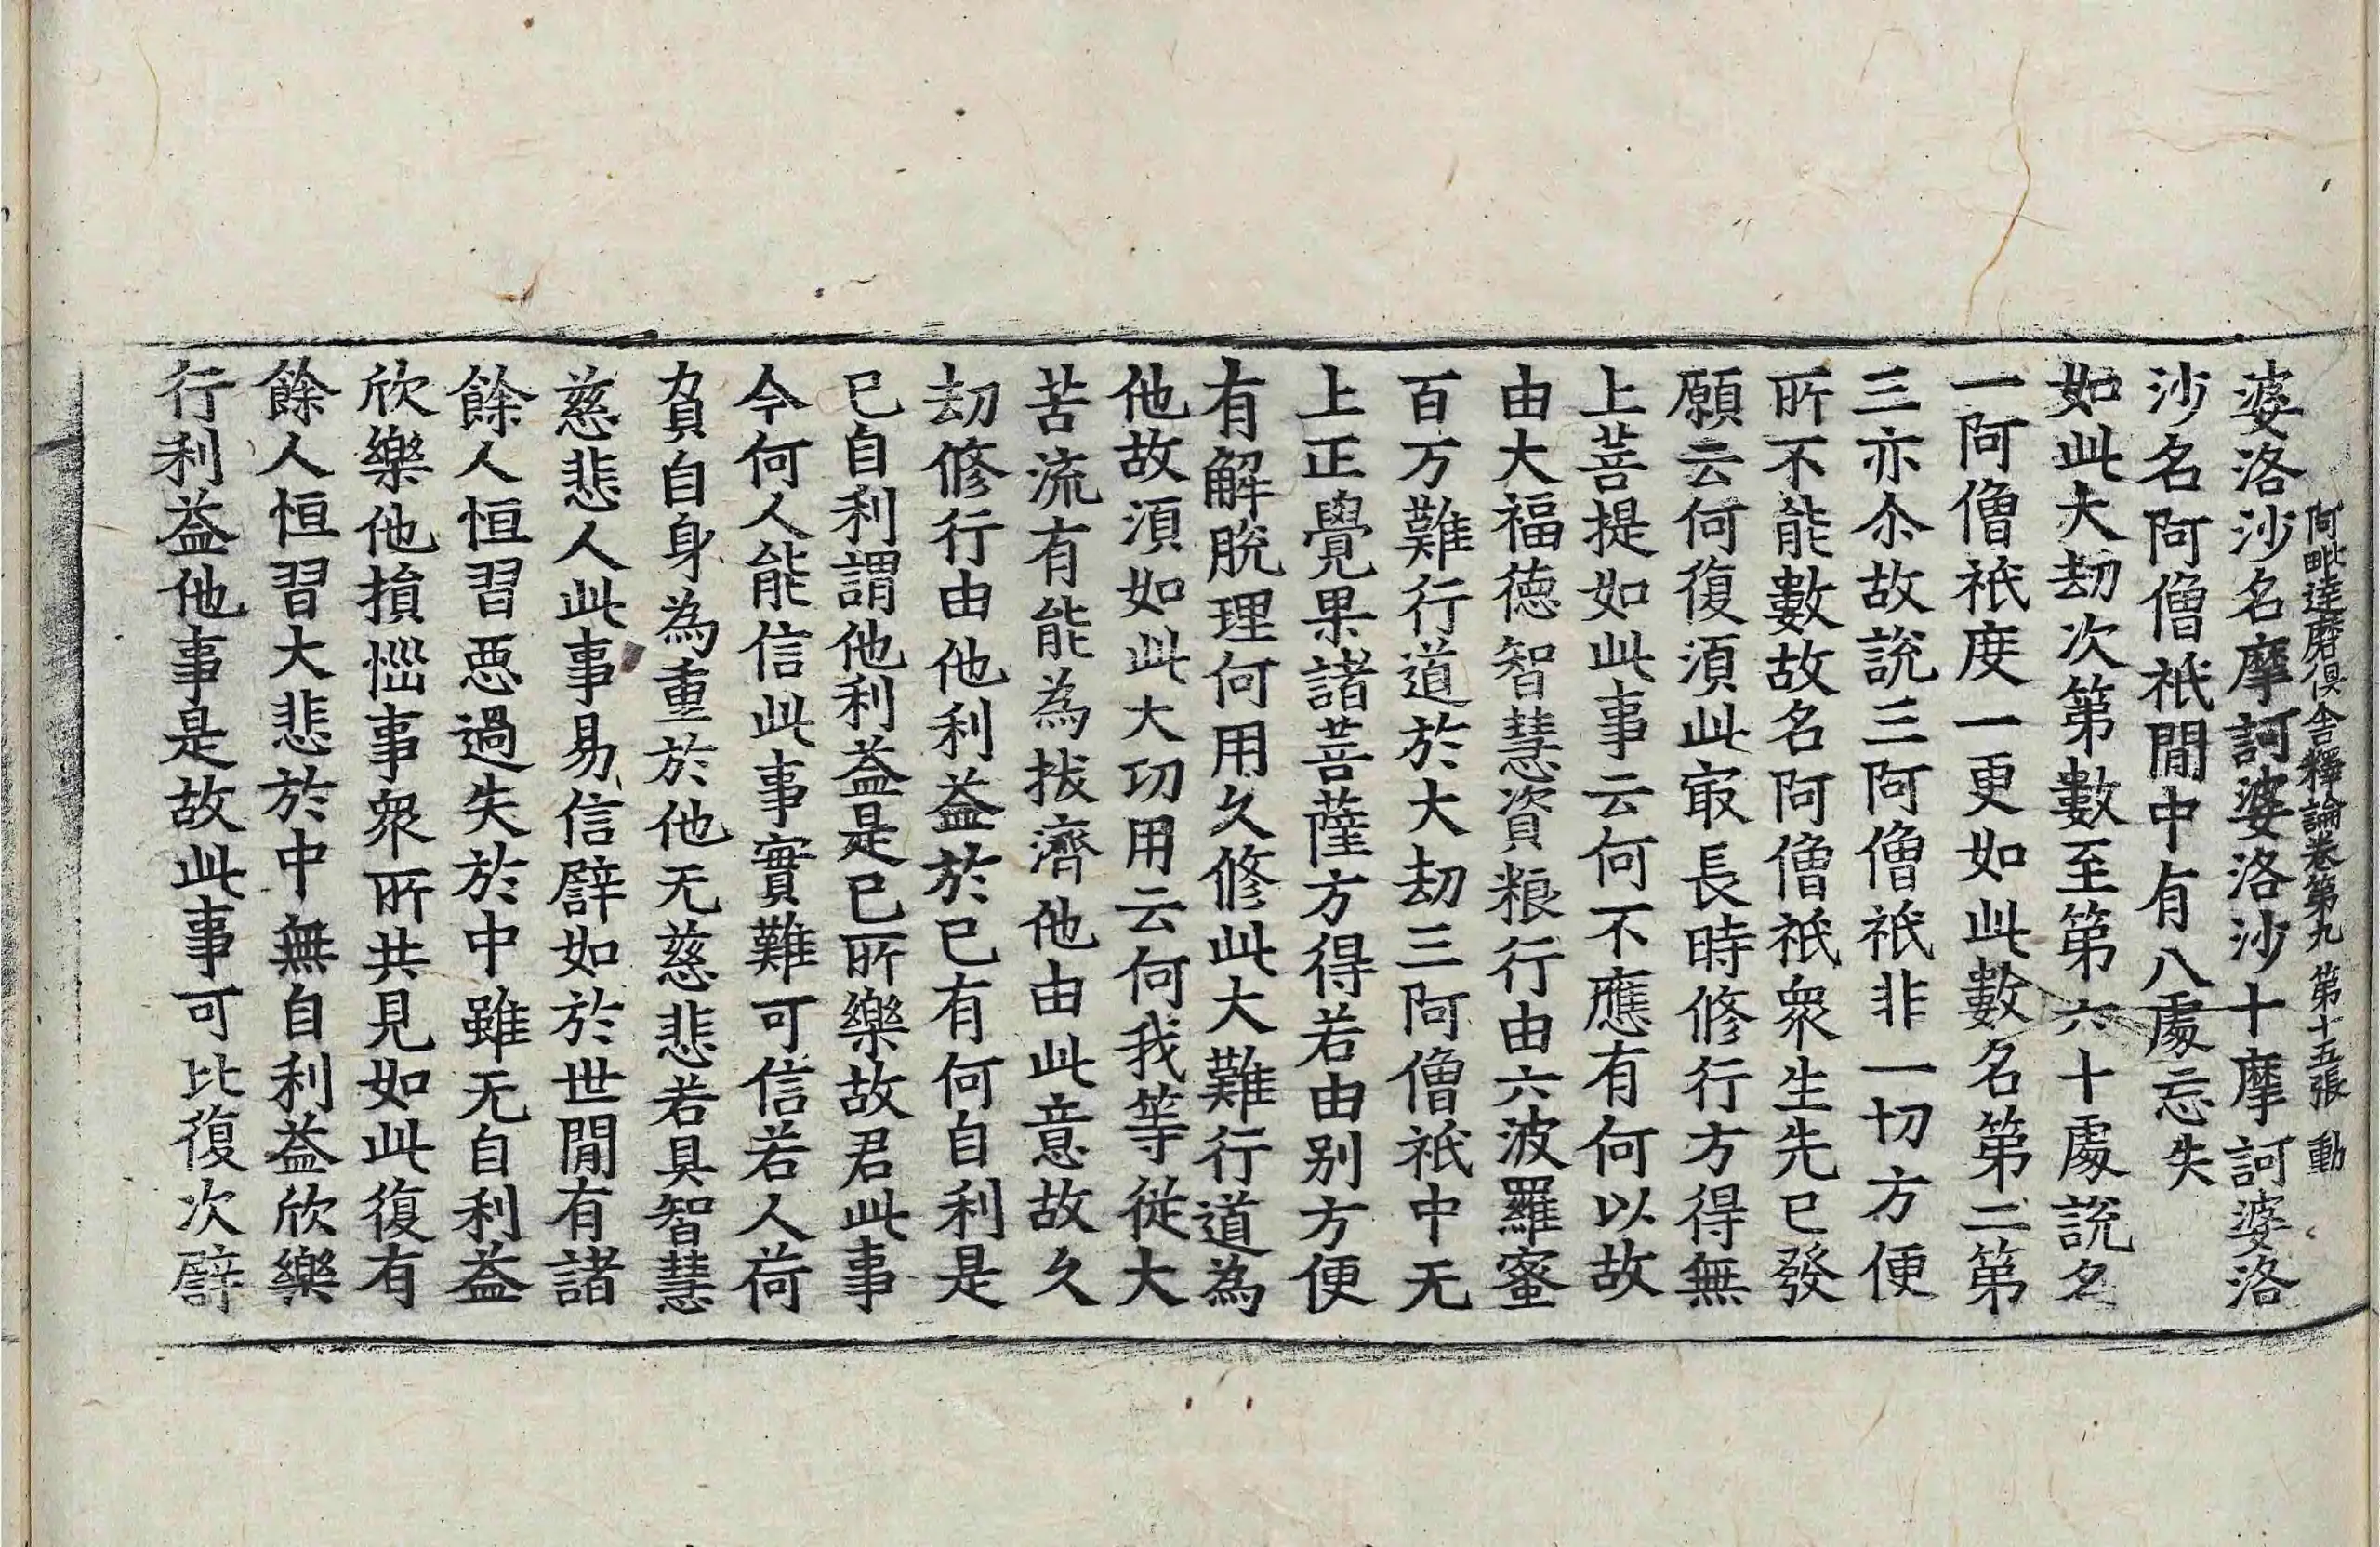 阿毗達磨俱舍釋論卷第九 第十五張 動
婆洛沙名摩訶婆洛沙十摩訶婆洛
沙名阿僧祇閒中有八處忘失
如此大劫次第數至第六十處說名
一阿僧祇度一更如此數名第二第
三亦尒故說三阿僧祇非一切方便
所不能數故名阿僧祇衆生先已發
願云何復湏此㝡長時修行方得無
上菩提如此事云何不應有何以故
由大福德智慧資粮行由六波羅蜜
百万難行道於大劫三阿僧祇中无
上正覺果諸菩薩方得若由别方便
有解脫理何用久修此大難行道為
他故湏如此大功用云何我等從大
苦流有能為拔濟他由此意故久
劫修行由他利益於已有何自利是
已自利謂他利益是已所樂故君此事
今何人能信此事實難可信若人荷
負自身為重於他无慈悲若具智慧
慈悲人此事易信譬如於世閒有諸
餘人恒習惡過失於中雖无自利益
欣樂他損惱事衆所共見如此復有
餘人恒習大悲於中無自利益欣樂
行利益他事是故此事可比復次譬